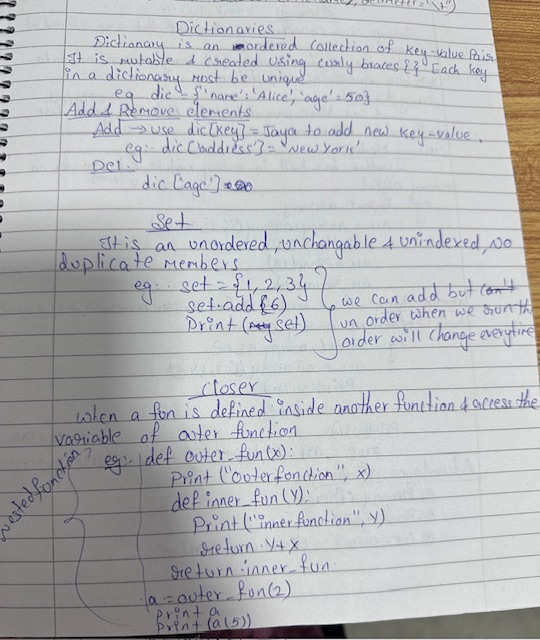 delimeter="\t")
Dictionaries
Dictionary is an ordered collection of key-value Pair
It is mutable & created using curly braces {} Each key
in a dictionary must be unique
eg dic = {'name': 'Alice', 'age': 50}
Add & Remove elements
Add → use dic[key] = Jaya to add new key-value.
eg:- dic['address'] = 'New York'
Del.
dic ['age']
Set
It is an unordered, unchangable & unindexed, No
duplicate members
eg:- set = {1, 2, 3}
set.add{6)
Print (set)
we can add but can't
un order when we run the
order will change everytime
Closer
when a fun is defined inside another function & access the
variable of outer function
Nested function
eg:- def outer_fun(x):
Print ("Outerfonction", x)
def inner_fun(Y):
Print("innerfunction", Y)
return Y+X
return inner_fun
a = outer_fun(2)
print a
print (a(5))